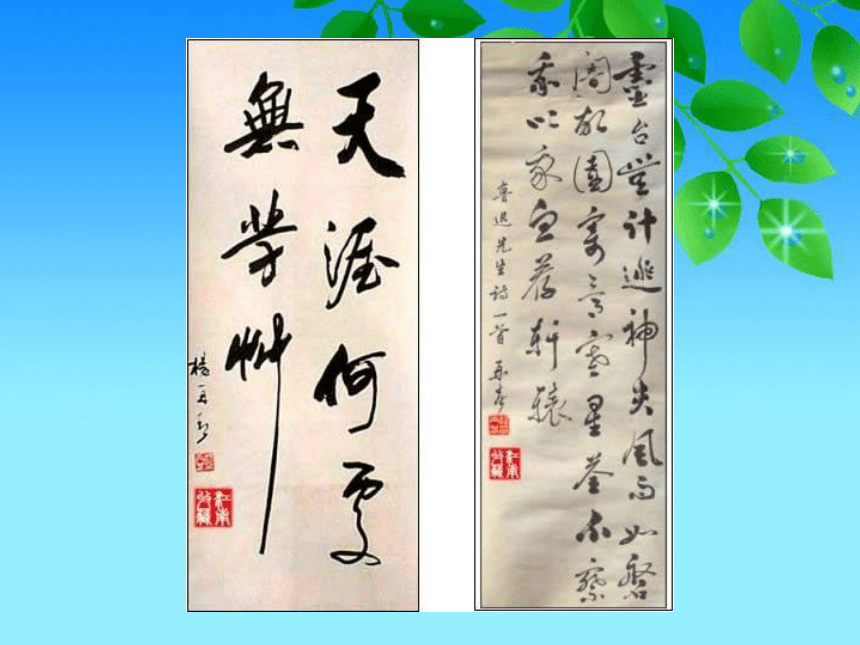 天涯何處
無芳艸
楊再春
靈台無計逃神矢風雨如磐
闇故園寄意寒星荃不察
我以我血荐軒轅
魯迅先生詩一首 再春